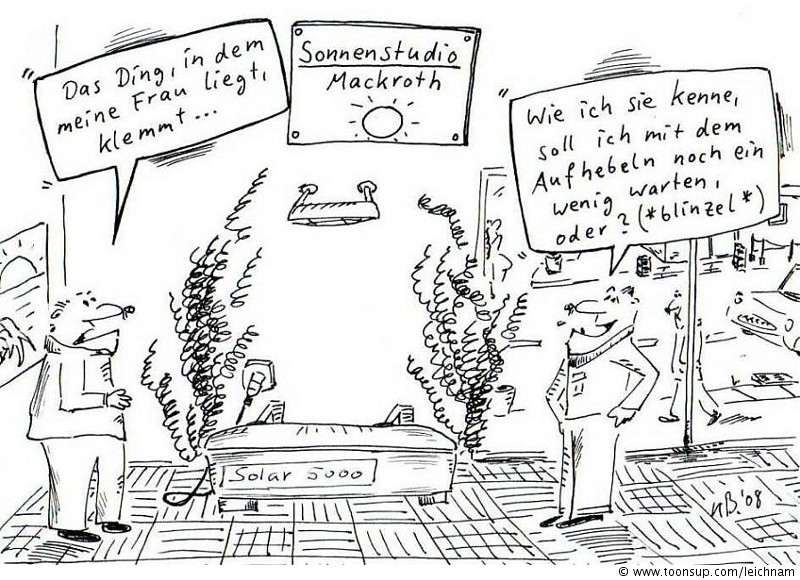 Sonnenstudio
Mackroth
Das Ding, in dem
meine Frau liegt,
klemmt...
Wie ich sie kenne,
soll ich mit dem
Aufhebeln noch ein
wenig warten,
oder? (*blinzel*)
Solar 5000
nB.'08
© www.toonsup.com/leichnam